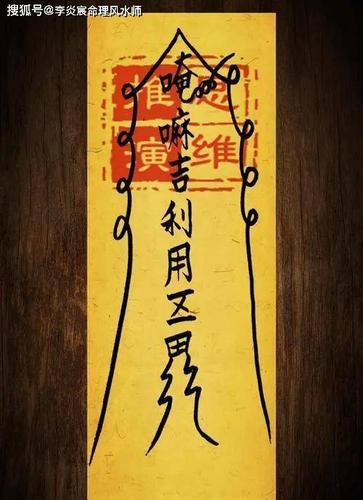 搜狐号@李炎宸命理风水师
唵嘛吉利用
维
推演